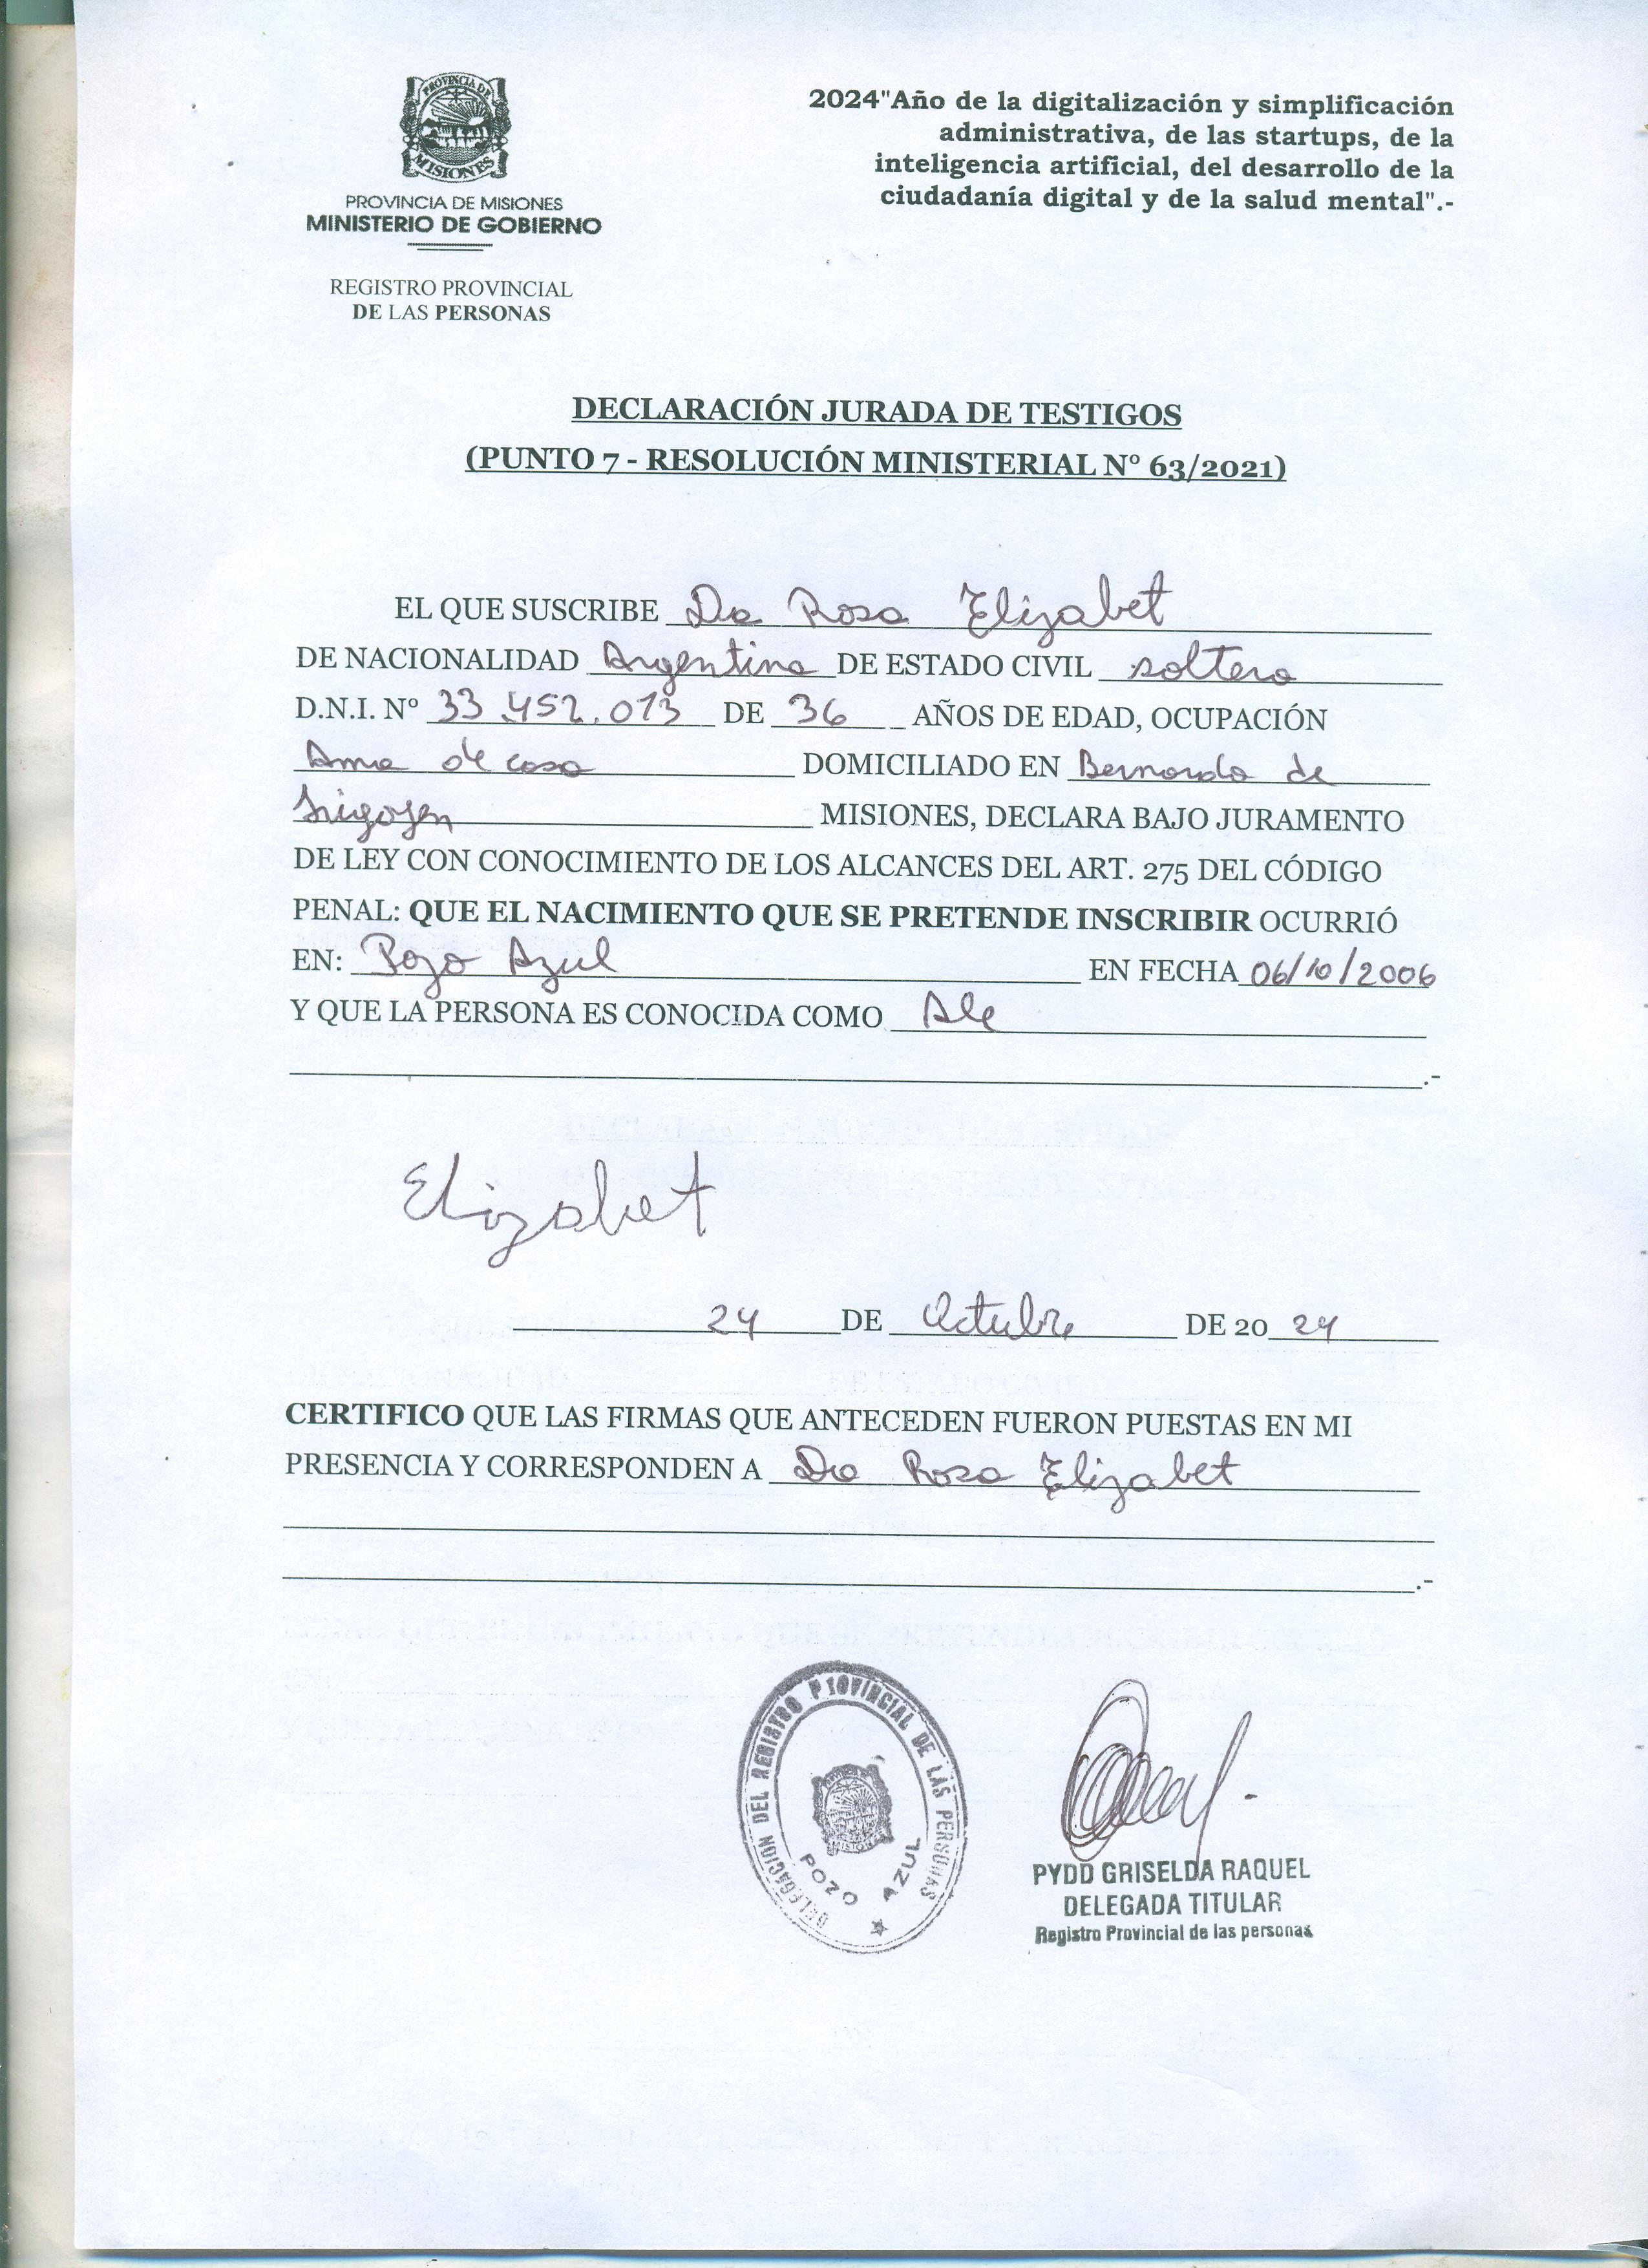 PROVINCIA DE
MISIONES
PROVINCIA DE MISIONES
MINISTERIO DE GOBIERNO
REGISTRO PROVINCIAL
DE LAS PERSONAS
2024"Año de la digitalización y simplificación
administrativa, de las startups, de la
inteligencia artificial, del desarrollo de la
ciudadanía digital y de la salud mental".-
DECLARACIÓN JURADA DE TESTIGOS
(PUNTO 7 - RESOLUCIÓN MINISTERIAL Nº 63/2021)
EL QUE SUSCRIBE Da Rosa Elizabet
DE NACIONALIDAD Argentina DE ESTADO CIVIL soltera
D.N.I. Nº 33.452.013 DE 36 AÑOS DE EDAD, OCUPACIÓN
Ama de casa DOMICILIADO EN Bernardo de
Irigoyen MISIONES, DECLARA BAJO JURAMENTO
DE LEY CON CONOCIMIENTO DE LOS ALCANCES DEL ART. 275 DEL CÓDIGO
PENAL: QUE EL NACIMIENTO QUE SE PRETENDE INSCRIBIR OCURRIÓ
EN: Pozo Azul EN FECHA 06/10/2006
Y QUE LA PERSONA ES CONOCIDA COMO Ale
.-
Elizabet
24 DE Octubre DE 2024
CERTIFICO QUE LAS FIRMAS QUE ANTECEDEN FUERON PUESTAS EN MI
PRESENCIA Y CORRESPONDEN A Da Rosa Elizabet
.-
DELEGACION DEL REGISTRO PROVINCIAL DE LAS PERSONAS
POZO AZUL
PYDD GRISELDA RAQUEL
DELEGADA TITULAR
Registro Provincial de las personas